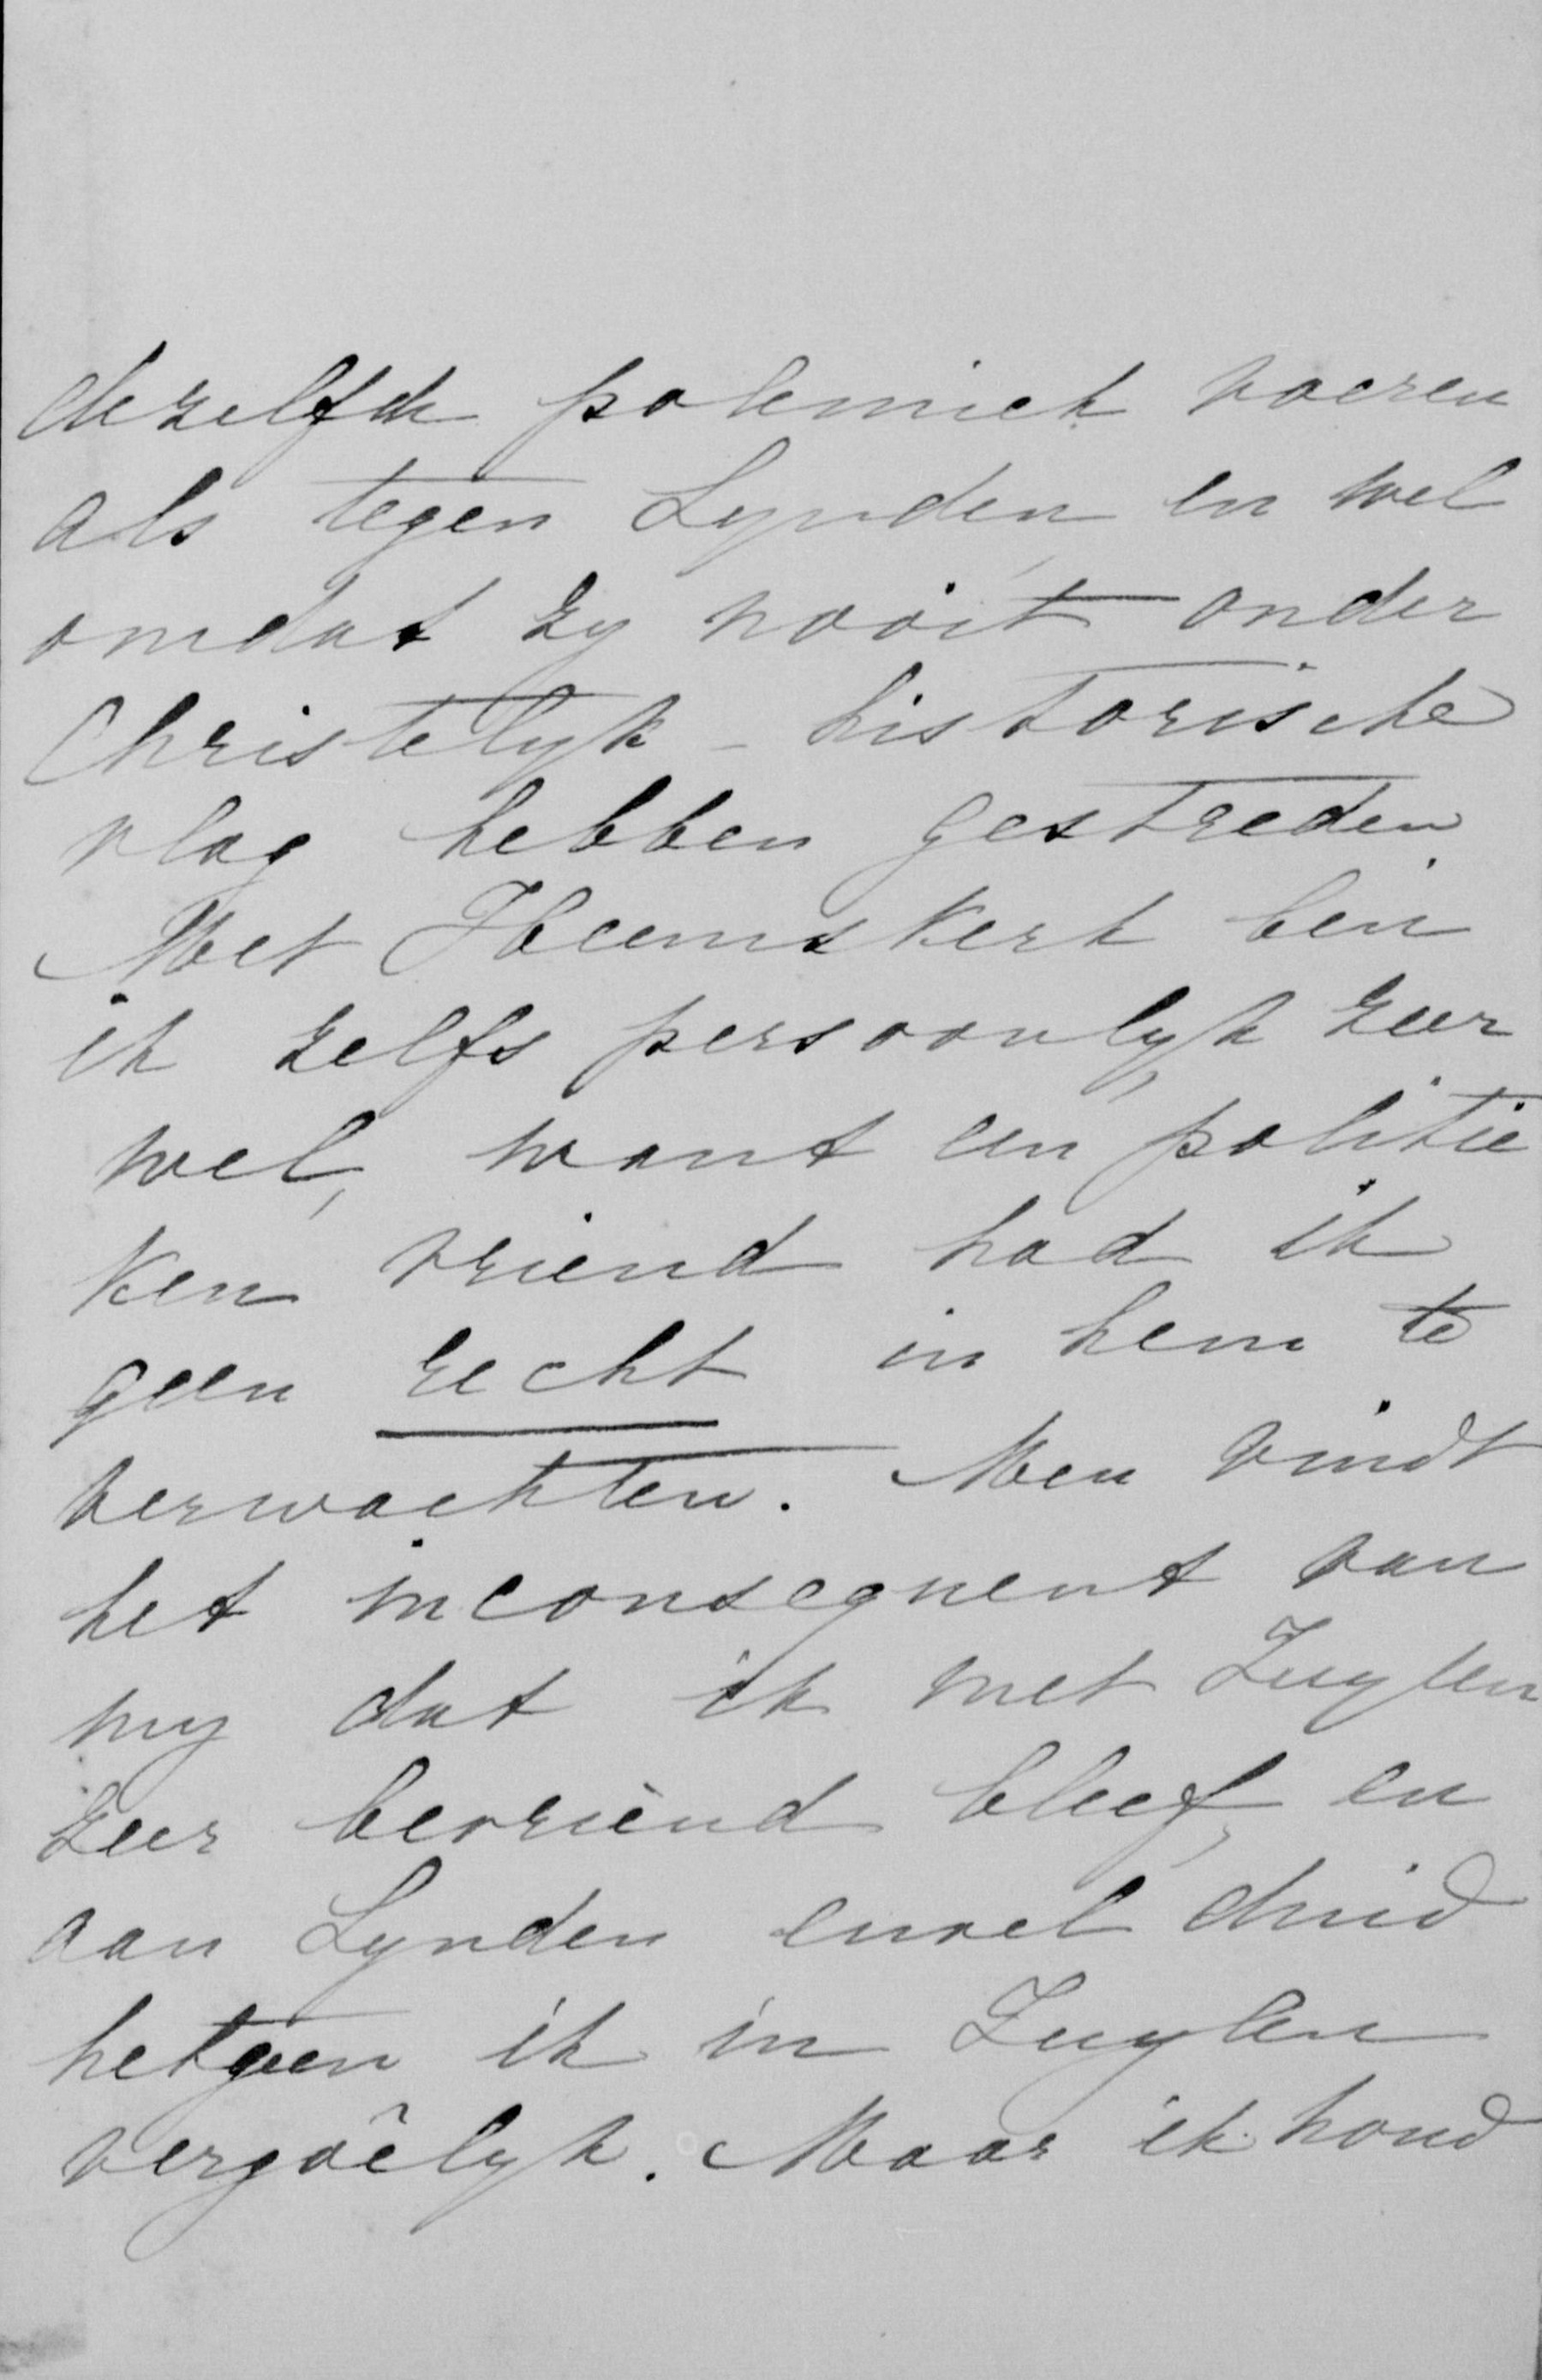 dezelfde polemiek voeren
als tegen Lynden, en wel
omdat zy nooit onder
Christelyk-historische
vlag hebben gestreden.
Met Heemskerk ben
ik zelfs persoonlyk zeer
wel, want een politie
ken vriend had ik
geen recht in hem te
verwachten. Men vindt
het inconsequent van
my dat ik met Zuylen
zeer bevriend bleef, en
aan Lynden euvel duid
hetgeen ik in Zuylen
vergoêlyk. Maar ik houd